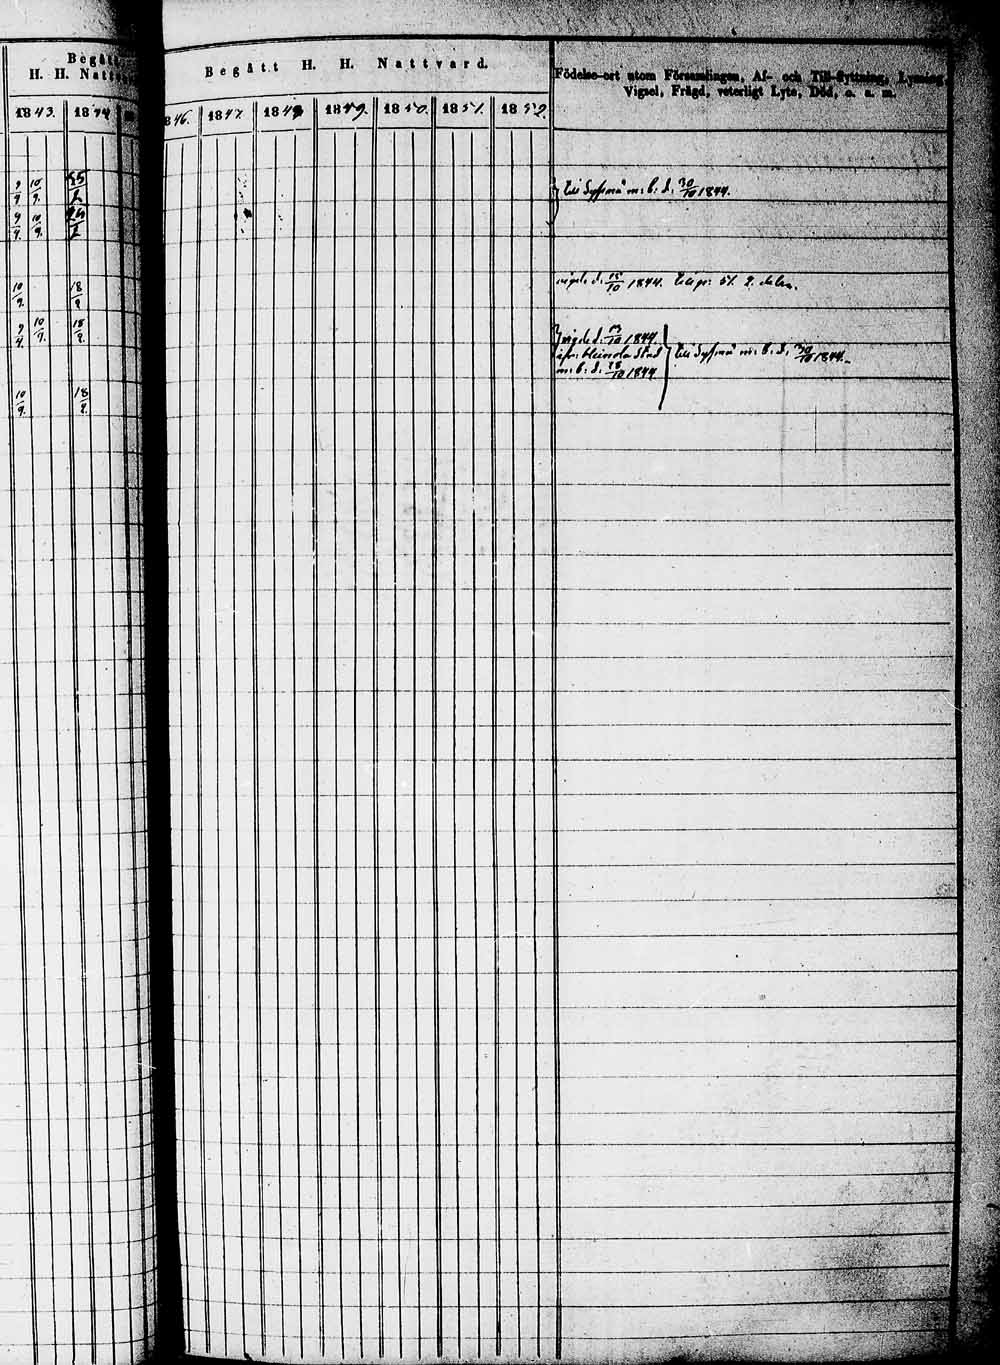 Begått
H. H. Nattvard
1843. 1844
9/9 10/9. 25/2
9/9. 10/9. 24/2
10/9. 18/2
9/9. 10/9. 18/2.
10/9. 18/2.
Begått H. H. Nattvard.
846. 1847 1848 1849. 1850. 1851. 1852.
Födelse-ort utom Församlingen, Af- och Till-flyttning, Lysning,
Vigsel, Frägd, veterligt Lyte, Död, o. s. m.
Till Sysmä m: b. d. 30/10 1844.
vigde d. 15/10 1844.
vigde d. 13/10 1844
ifrån Heinola Stad
m: b: d: 18/10 1844
Till Sysmä m: b. d. 30/10 1844.